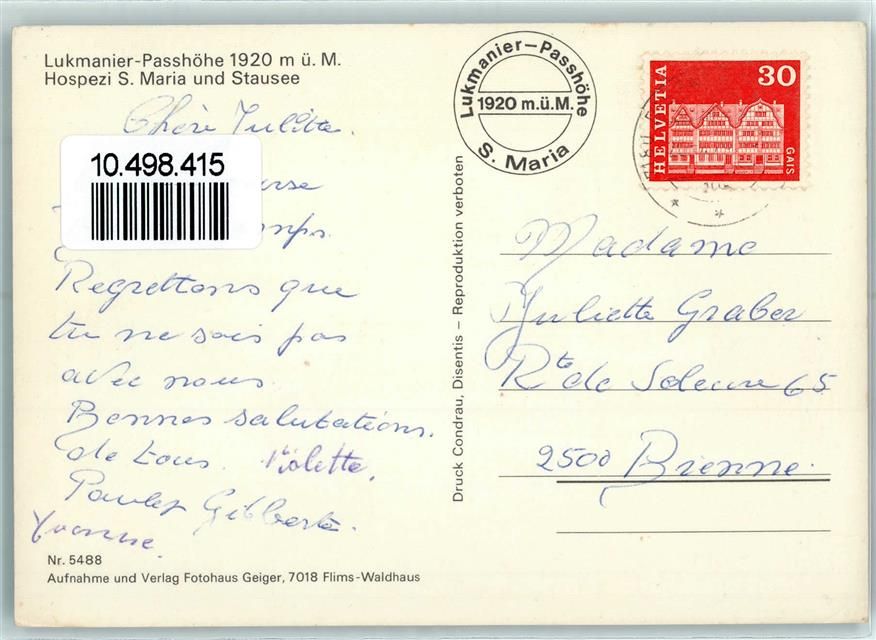 Lukmanier-Passhöhe 1920 m ü. M.
Hospezi S. Maria und Stausee
Lukmanier-Passhöhe
1920 m.ü.M.
S. Maria
HELVETIA
30
GAIS
Chère Juliette.
10.498.415
Regrettons que
tu ne sois pas
avec nous
Bonnes salutations.
de tous. Violette.
Gilberte.
Yvonne.
Druck Condrau, Disentis – Reproduktion verboten
Madame
Juliette Graber
Rte de Soleure 65
2500 Bienne.
Nr. 5488
Aufnahme und Verlag Fotohaus Geiger, 7018 Flims-Waldhaus